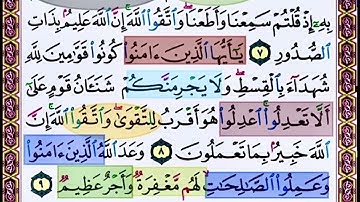 بِهِۦٓ إِذۡ قُلۡتُمۡ سَمِعۡنَا وَأَطَعۡنَاۖ وَٱتَّقُواْ ٱللَّهَۚ إِنَّ ٱللَّهَ عَلِيمُۢ بِذَاتِ
ٱلصُّدُورِ ٧ يَٰٓأَيُّهَا ٱلَّذِينَ ءَامَنُواْ كُونُواْ قَوَّٰمِينَ لِلَّهِ
شُهَدَآءَ بِٱلۡقِسۡطِۖ وَلَا يَجۡرِمَنَّكُمۡ شَنَـَٔانُ قَوۡمٍ عَلَىٰٓ
أَلَّا تَعۡدِلُواْۚ ٱعۡدِلُواْ هُوَ أَقۡرَبُ لِلتَّقۡوَىٰۖ وَٱتَّقُواْ ٱللَّهَۚ إِنَّ
ٱللَّهَ خَبِيرُۢ بِمَا تَعۡمَلُونَ ٨ وَعَدَ ٱللَّهُ ٱلَّذِينَ ءَامَنُواْ
وَعَمِلُواْ ٱلصَّٰلِحَٰتِ لَهُم مَّغۡفِرَةٞ وَأَجۡرٌ عَظِيمٞ ٩